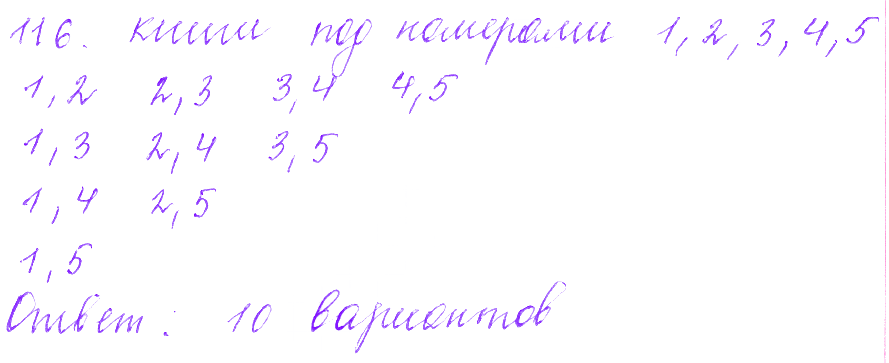 116. книги под номерами 1, 2, 3, 4, 5
1, 2 2, 3 3, 4 4, 5
1, 3 2, 4 3, 5
1, 4 2, 5
1, 5
Ответ: 10 вариантов